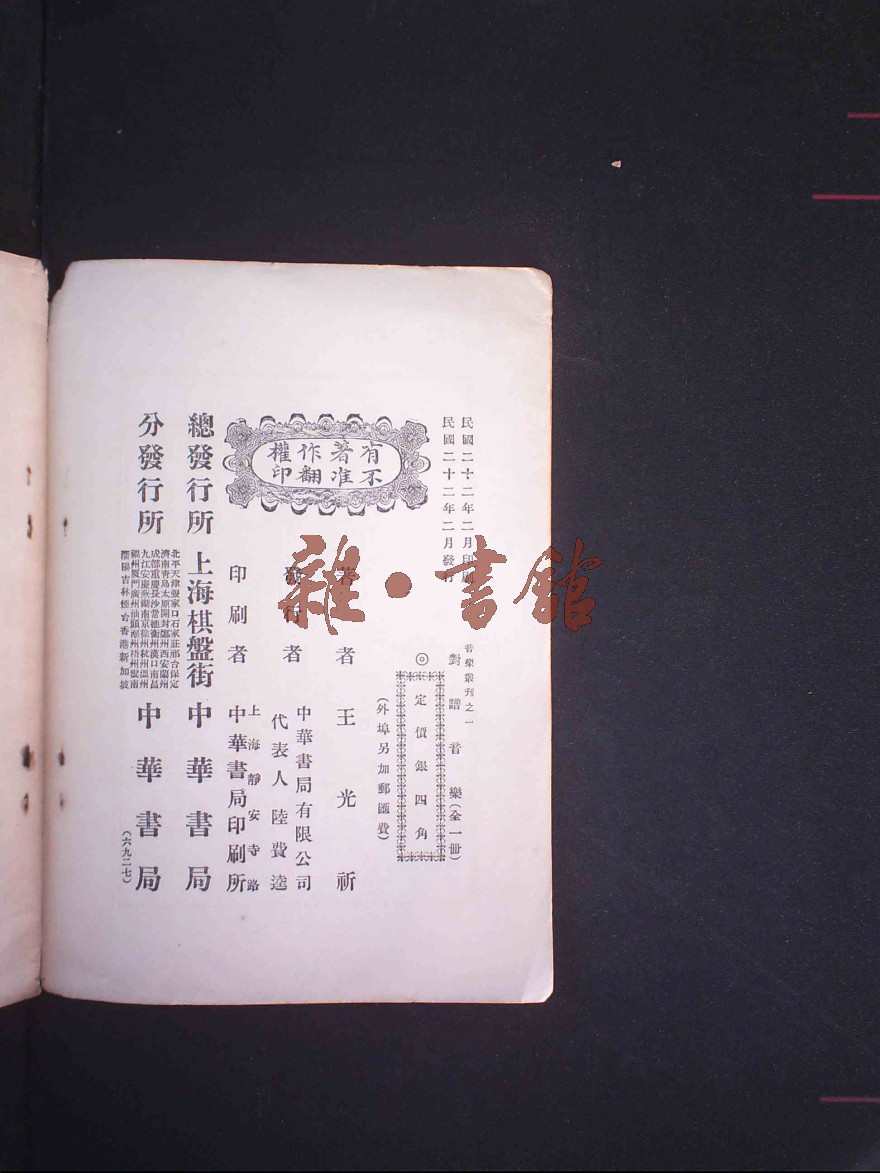 民國二十二年二月印刷
民國二十二年二月發行
音樂叢刊之一
對譜音樂(全一冊)
◎定價銀四角
(外埠另加郵匯費)
有著作權
不准翻印
著者王光祈
發行者
中華書局有限公司
代表人陸費逵
印刷者
上海靜安寺路
中華書局印刷所
總發行所 上海棋盤街 中華書局
分發行所
北平天津張家口石家莊邢台保定
濟南青島太原開封鄭州西安蘭州
成都重慶長沙常德衡州漢口南昌
九江安慶蕪湖南京徐州杭州溫州
福州廈門廣州汕頭潮州梧州雲南
瀋陽吉林煙台香港新加坡
中華書局
(六九二七)
雜·書館